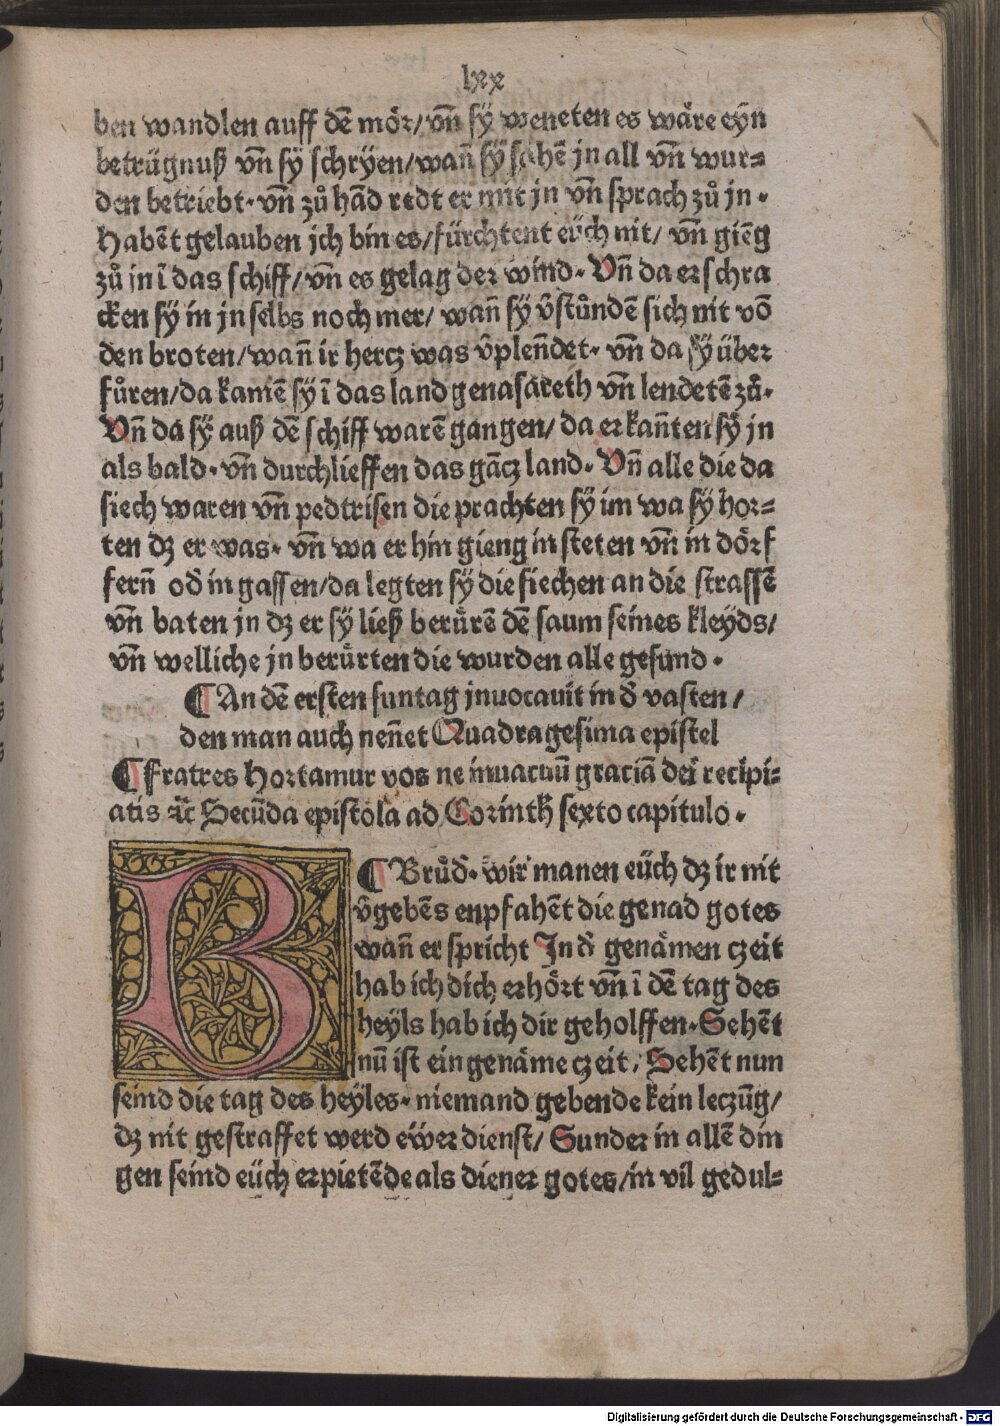 lxx
ben wandlen auff dē mör/ vñ sÿ weneten es wäre eyn
betrügnuß vñ sÿ schrÿen/ wañ sÿ sahē jn all vñ wur=
den betriebt. vñ zů hād redt er mit jn vñ sprach zů jn.
Habēt gelauben jch bin es/ fürchtent eüch nit/ vñ giēg
zů jn ī das schiff/ vñ es gelag der wind. Vñ da erschra
cken sÿ in jn selbs noch mer/ wañ sÿ v̄stůndē sich nit vō
den broten/ wañ ir hercz was v̄plenndet. vñ da sÿ über
fůren/ da kamē sÿ ī das land genasareth vñ lendetē zů.
Vñ da sÿ auß dē schiff warē gangen/ da erkañten sÿ jn
als bald. vñ durchlieffen das gācz land. Vñ alle die da
siech waren vñ pedtrisen die prachten sÿ im wa sÿ hor=
ten dz er was. vñ wa er hin gieng in steten vñ in dörf
fern̄ od̄ in gassen/ da legten sÿ die siechen an die strassē
vñ baten jn dz er sÿ ließ berůrē dē saum seines kleyds/
vñ welliche jn berůrten die wurden alle gesund.
¶ An dē ersten suntag jnuocauit in d̄ vasten/
den man auch neñet Quadragesima epistel
¶ Fratres Hortamur vos ne inuacuū graciā dei recipi=
atis ꝛc̄ Secūda epistola ad Corinth̄ sexto capitulo.
B
¶ Brůd̄. wir manen eüch dz ir nit
v̄gebēs enpfahēt die genad gotes
wañ er spricht Jn d̄ genämen czeit
hab ich dich erhört vñ ī dē tag des
heyls hab ich dir geholffen. Sehēt
nū ist ein genäme czeit. Sehēt nun
seind die tag des heyles. niemand gebende kein leczūg/
dz nit gestraffet werd eẅer dienst/ Sunder in allē din
gen seind eüch erpietēde als diener gotes/ in vil gedul=
Digitalisierung gefördert durch die Deutsche Forschungsgemeinschaft - DFG